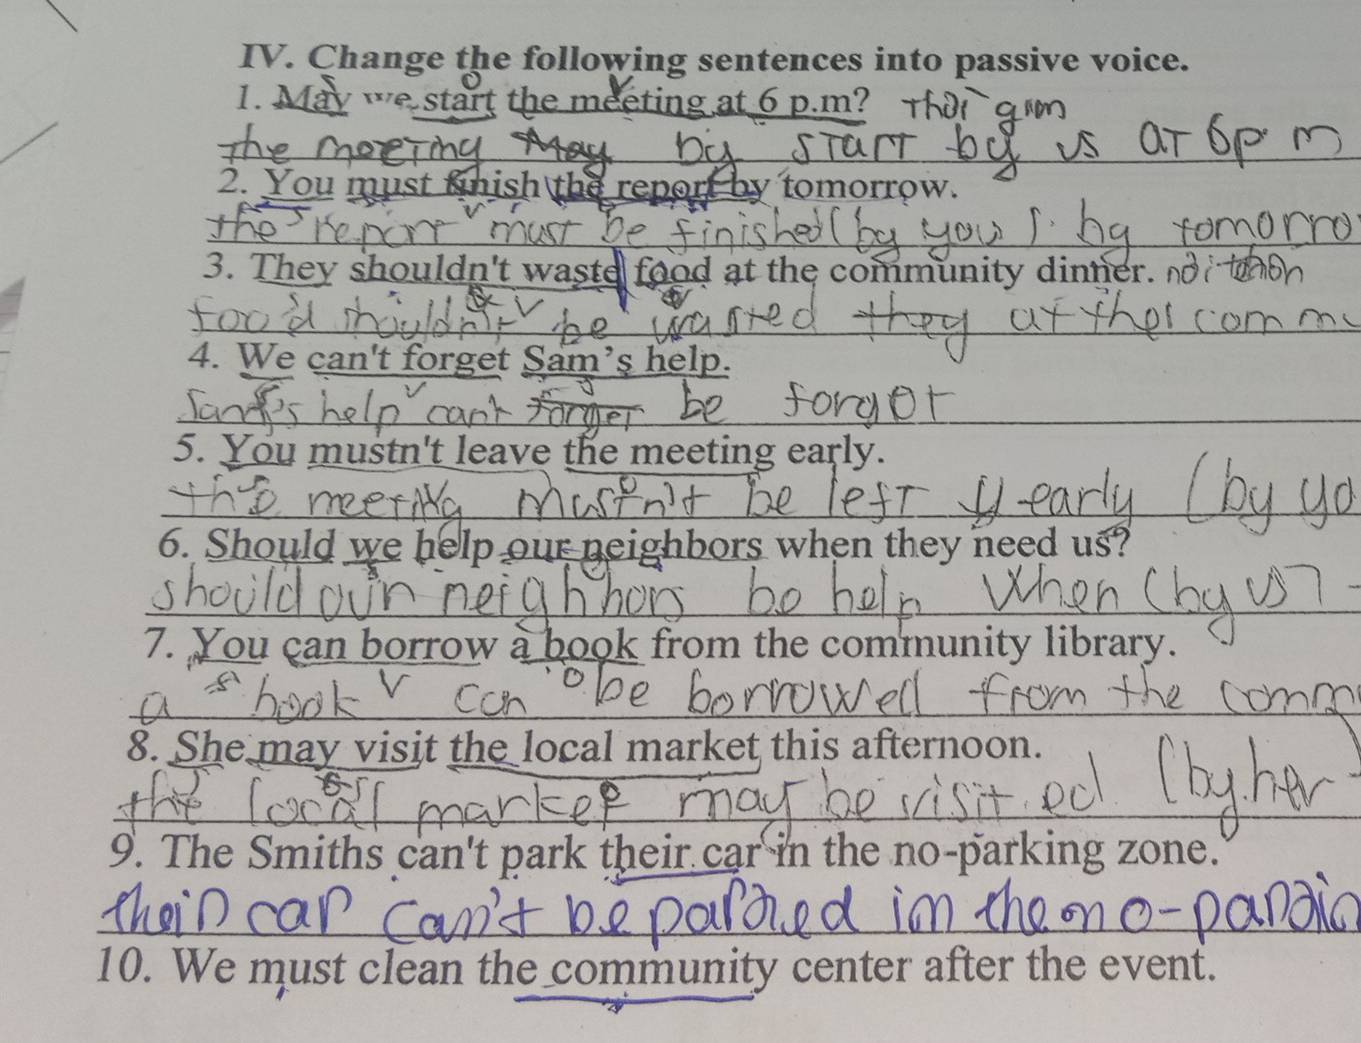 IV. Change the following sentences into passive voice.
1. May we start the meeting at 6 p.m? Thời gian
the meeting may by start by us at 6 p m
2. You must finish the report by tomorrow.
the report must be finished (by you). by tomorro
3. They shouldn't waste food at the community dinner. nơi
food shouldn't be wasted they at the commu
4. We can't forget Sam's help.
Sam's help can't forget be forgot
5. You mustn't leave the meeting early.
the meeting mustn't be left early (by yo
6. Should we help our neighbors when they need us?
should our neighbors be help when (by us)
7. You can borrow a book from the community library.
a book can be borrowed from the comm
8. She may visit the local market this afternoon.
the local market may be visited (by her
9. The Smiths can't park their car in the no-parking zone.
their car can't be parked in the no-parking
10. We must clean the community center after the event.